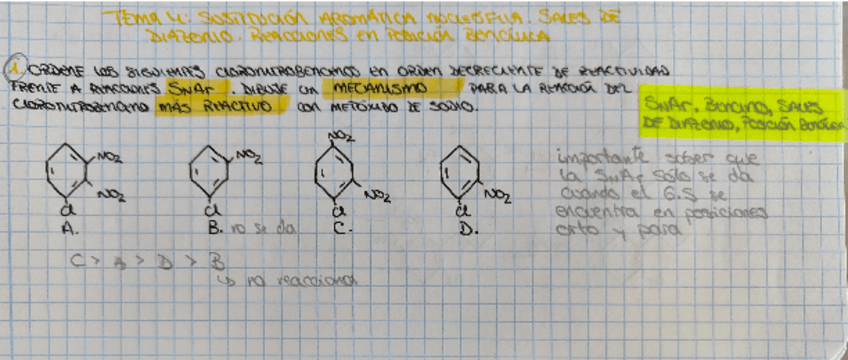 TEMA 4: SUSTITUCIÓN AROMÁTICA NUCLEÓFILA. SALES DE
DIAZONIO. REACCIONES EN POSICIÓN BENCÍLICA
1 ORDENE LOS SIGUIENTES CLORONITROBENCENOS EN ORDEN DECRECIENTE DE REACTIVIDAD
FRENTE A REACCIONES SNAr. DIBUJE UN MECANISMO PARA LA REACCIÓN DEL
CLORONITROBENCENO MÁS REACTIVO CON METÓXIDO DE SODIO.
SNAr, Benceno, SALES
DE DIAZONIO, POSICIÓN BENCÍLICA
NO2 NO2 NO2
NO2 NO2 NO2
Cl Cl Cl Cl
A. B. no se da C. D.
importante saber que
la SNAr sólo se da
cuando el G.S se
encuentra en posiciones
orto y para
C > A > D > B
↳ no reacciona